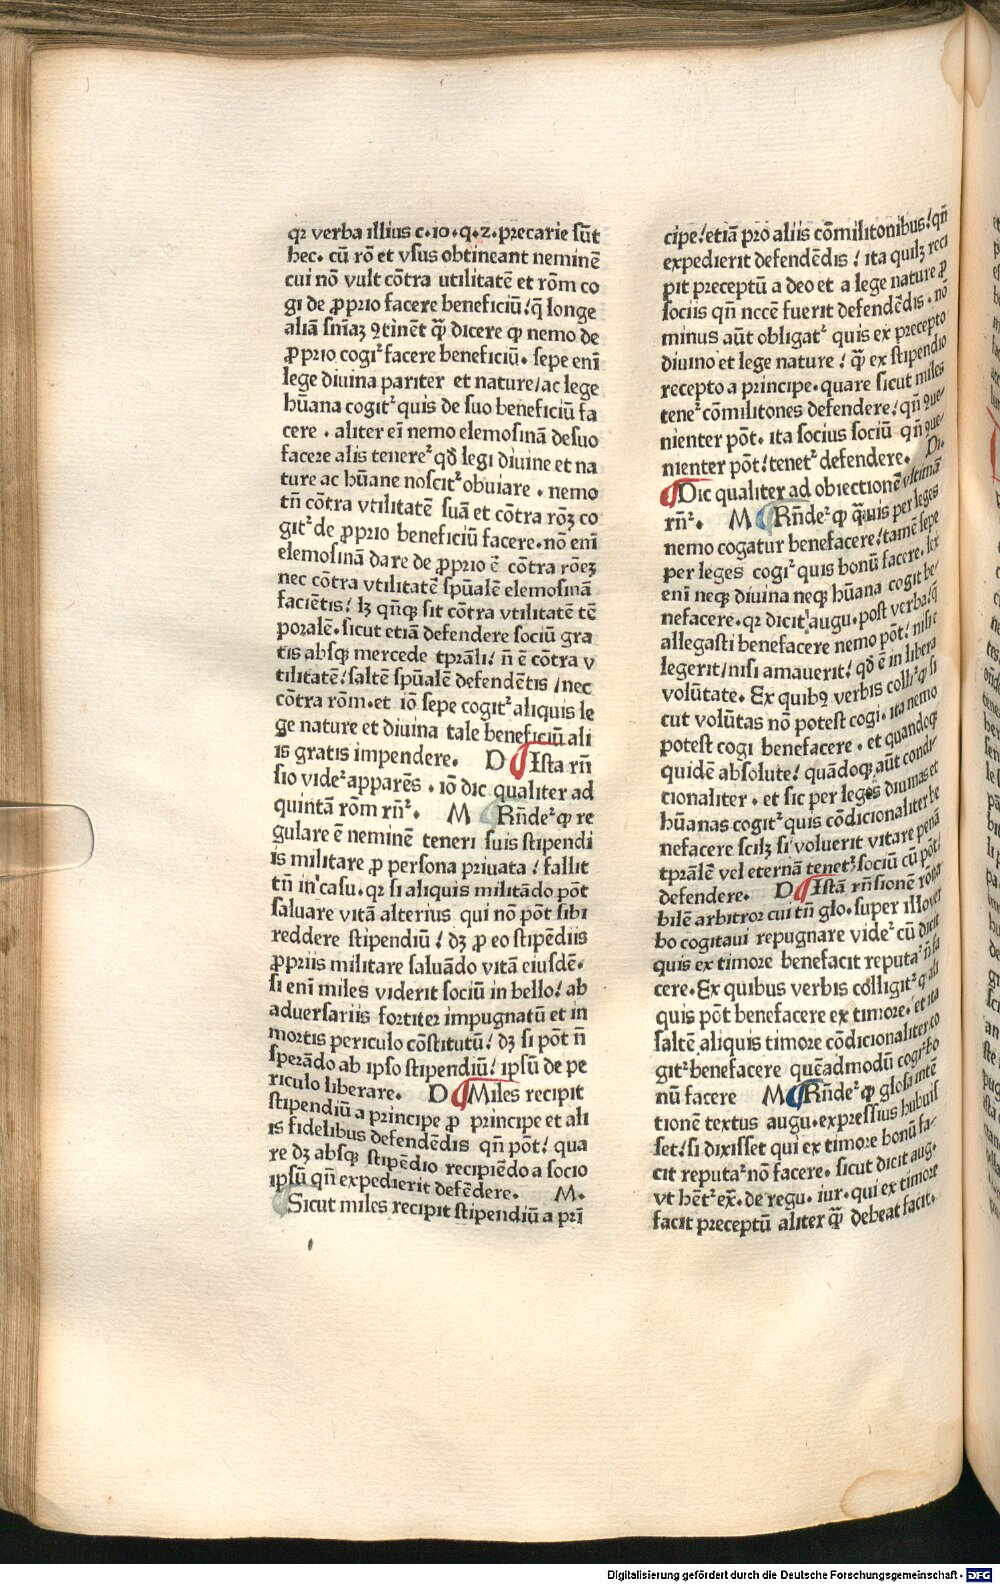 qꝛ verba illius c·10·q·2·precarie sūt
hec· cū rō et vsus obtineant neminē
cui nō vult cōtra utilitatē et rōm co
gi de ꝓprio facere beneficiū! q̄ longe
aliā snīaꝫ ꝯtinēt q̄ꝫ dicere ꝙ nemo de
ꝓprio cogiᷣ facere beneficiū· sepe enī
lege diuina pariter et nature/ac lege
hūana cogitᷣ quis de suo beneficiū fa
cere · aliter eī nemo elemosinā desuo
facere alis tenereᷣ qd̄ legi diuine et na
ture ac hūane noscitᷣ obuiare · nemo
tn̄ cōtra vtilitatē suā et cōtra rōꝫ co
gitᷣ de ꝓprio beneficiū facere·nō enī
elemosinā dare de ꝓprio ē cōtra rōeꝫ
nec cōtra vtilitatē spūalē elemosinā
faciētis! lꝫ qn̄qꝫ sit cōtra vtilitatē tē
poralē·sicut etiā defendere sociū gra
tis absqꝫ mercede tpālī! n̄ ē cōtra v
tilitatē! saltē spūalē defendētis /nec
cōtra rōm·et iō sepe cogitᷣ aliquis le
ge nature et diuina tale beneficiū ali
is gratis impendere· D ¶ Ista rn̄
sio videᷣ apparēs · iō dic qualiter ad
quintā rōm rn̄ᷣ· M ¶ Rn̄deᷣ ꝙ re
gulare ē neminē teneri suis stipendi
is militare ꝓ persona priuata! fallit
tn̄ in casu·qꝛ si aliquis militādo pōt
saluare vitā alterius qui nō pōt sibi
reddere stipendiū! dꝫ ꝓ eo stipēdiis
ꝓpriis militare saluādo vitā eiusdē·
si enī miles viderit sociū in bello! ab
aduersariis fortiter impugnatū et in
mortis periculo cōstitutū! dꝫ si pōt n̄
sperādo ab ipso stipendiū! ipsū de pe
riculo liberare· D ¶ Miles recipit
stipendiū a principe ꝓ principe et ali
is fidelibus defendēdis qn̄ pōt! qua
re dꝫ absqꝫ stipēdio recipiēdo a socio
ipsū qn̄ expedierit defēdere· M·
¶ Sicut miles recipit stipendiū a prī
cipe! etiā pro aliis cōmilitonibus! qn̄
expedierit defendēdis! ita quilꝫ reci
pit preceptū a deo et a lege nature ꝓ
sociis qn̄ nccē fuerit defendēdis · nō
minus aūt obligatᷣ quis ex precepto
diuino et lege nature! q̄ꝫ ex stipendio
recepto a principe·quare sicut miles
teneᷣ cōmilitones defendere! qn̄ ꝯue-
nienter pōt· ita socius sociū qn̄ ꝯue-
nienter pōt! tenetᷣ defendere· Di·
¶ Dic qualiter ad obiectionē vltimā
rn̄ᷣ· M ¶ Rn̄deᷣ ꝙ q̄ꝫuis per leges
nemo cogatur benefacere! tamē sepe
per leges cogiᷣ quis bonū facere· lex
enī neqꝫ diuina neqꝫ hūana cogit be/
nefacere·qꝛ dicit augu·post verba! q̄
allegasti benefacere nemo pōt! nisi e
legerit/nisi amauerit! qd̄ ē in libera
volūtate· Ex quibꝯ verbis colliᷣ ꝙ si
cut volūtas nō potest cogi· ita nemo
potest cogi benefacere · et quandoqꝫ
quidē absolute! quādoqꝫ aūt condi/
cionaliter · et sic per leges diuinas et
hūanas cogitᷣ quis cōdicionaliter be
nefacere scilꝫ si voluerit vitare penā
tprālē vel eternā tenetᷣ sociū cū pōt!
defendere· D ¶ Istā rn̄sionē rōna
bilē arbitror cui tn̄ glo·super illo ver
bo cogitaui repugnare videᷣ cū dicit
quis ex timore benefacit reputaᷣ n̄ fa
cere·Ex quibus verbis colligitᷣ ꝙ ali
quis pōt benefacere ex timore· et ita
saltē aliquis timore cōdicionaliter co
gitᷣ benefacere quēadmodū cogiᷣ bo
nū facere M ¶ Rn̄deᷣ ꝙ glosa intē
tionē textus augu·expressius habuis
set! si dixisset qui ex timore bonū fa-
cit reputaᷣ nō facere· sicut dicit aug·
vt hētᷣ ex̄· de regu· iur· qui ex timore
facit preceptū aliter q̄ꝫ debeat facit·
Digitalisierung gefördert durch die Deutsche Forschungsgemeinschaft - DFG